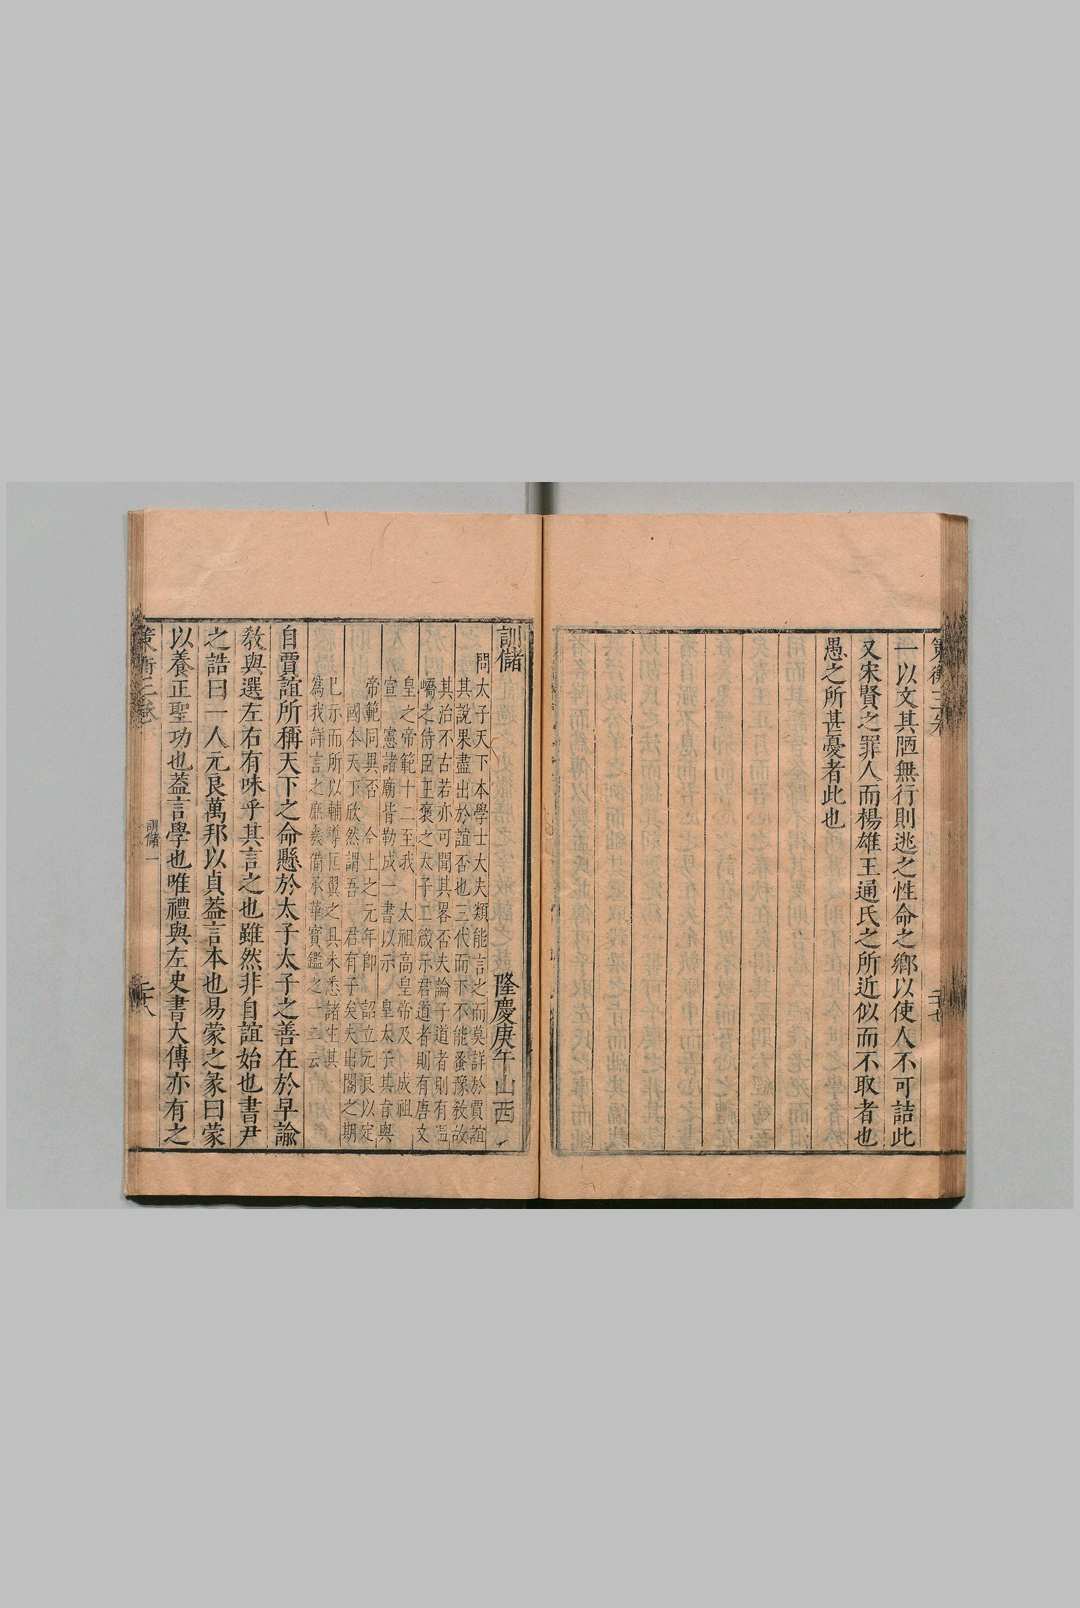 一以文其陋無行則逃之性命之鄉以使人不可詰此
又宋賢之罪人而楊雄王通氏之所近似而不取者也
愚之所甚憂者此也
訓儲 隆慶庚午山西
問太子天下本學士大夫類能言之而莫詳於賈誼
其說果盡出於誼否也三代而下不能蚤豫教故
其治不古若亦可聞其畧否夫論子道者則有
嶠之侍臣王褒之太子箴示君道者則有唐文
皇之帝範十二至我 太祖高皇帝及 成祖
宣 憲諸廟皆勒成一書以示 皇太子其旨與
帝範同異否 今上之元年即 詔立元良以定
國本天下欣然謂吾 君有子矣夫出閣之期
已示而所以輔導匡翼之具未悉諸生其
為我詳言之庶幾備承華寶鑑之一二云
自賈誼所稱天下之命懸於太子太子之善在於早諭
敎與選左右有味乎其言之也雖然非自誼始也書尹
之誥曰一人元良萬邦以貞葢言本也易蒙之彖曰蒙
以養正聖功也葢言學也唯禮與左史書大傳亦有之
訓儲一
二十八